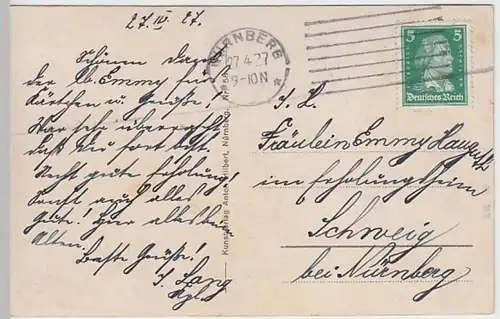 27. IV. 27.
Schönen Dank
der lb. Emmy für
Kärtchen u. Grüße!
War sehr überrascht,
daß Du fort bist.
Recht gute Erholung!
Sonst auch alles
Gute! Hier alles beim
Alten.
Beste Grüße!
J. Lang
NÜRNBERG
27.4.27
9-10N
5 5
Deutsches Reich
Kunstverlag Anton Hilbert, Nürnberg.
Fräulein Emmy Haug
im Erholungsheim
Schweig
bei Nürnberg